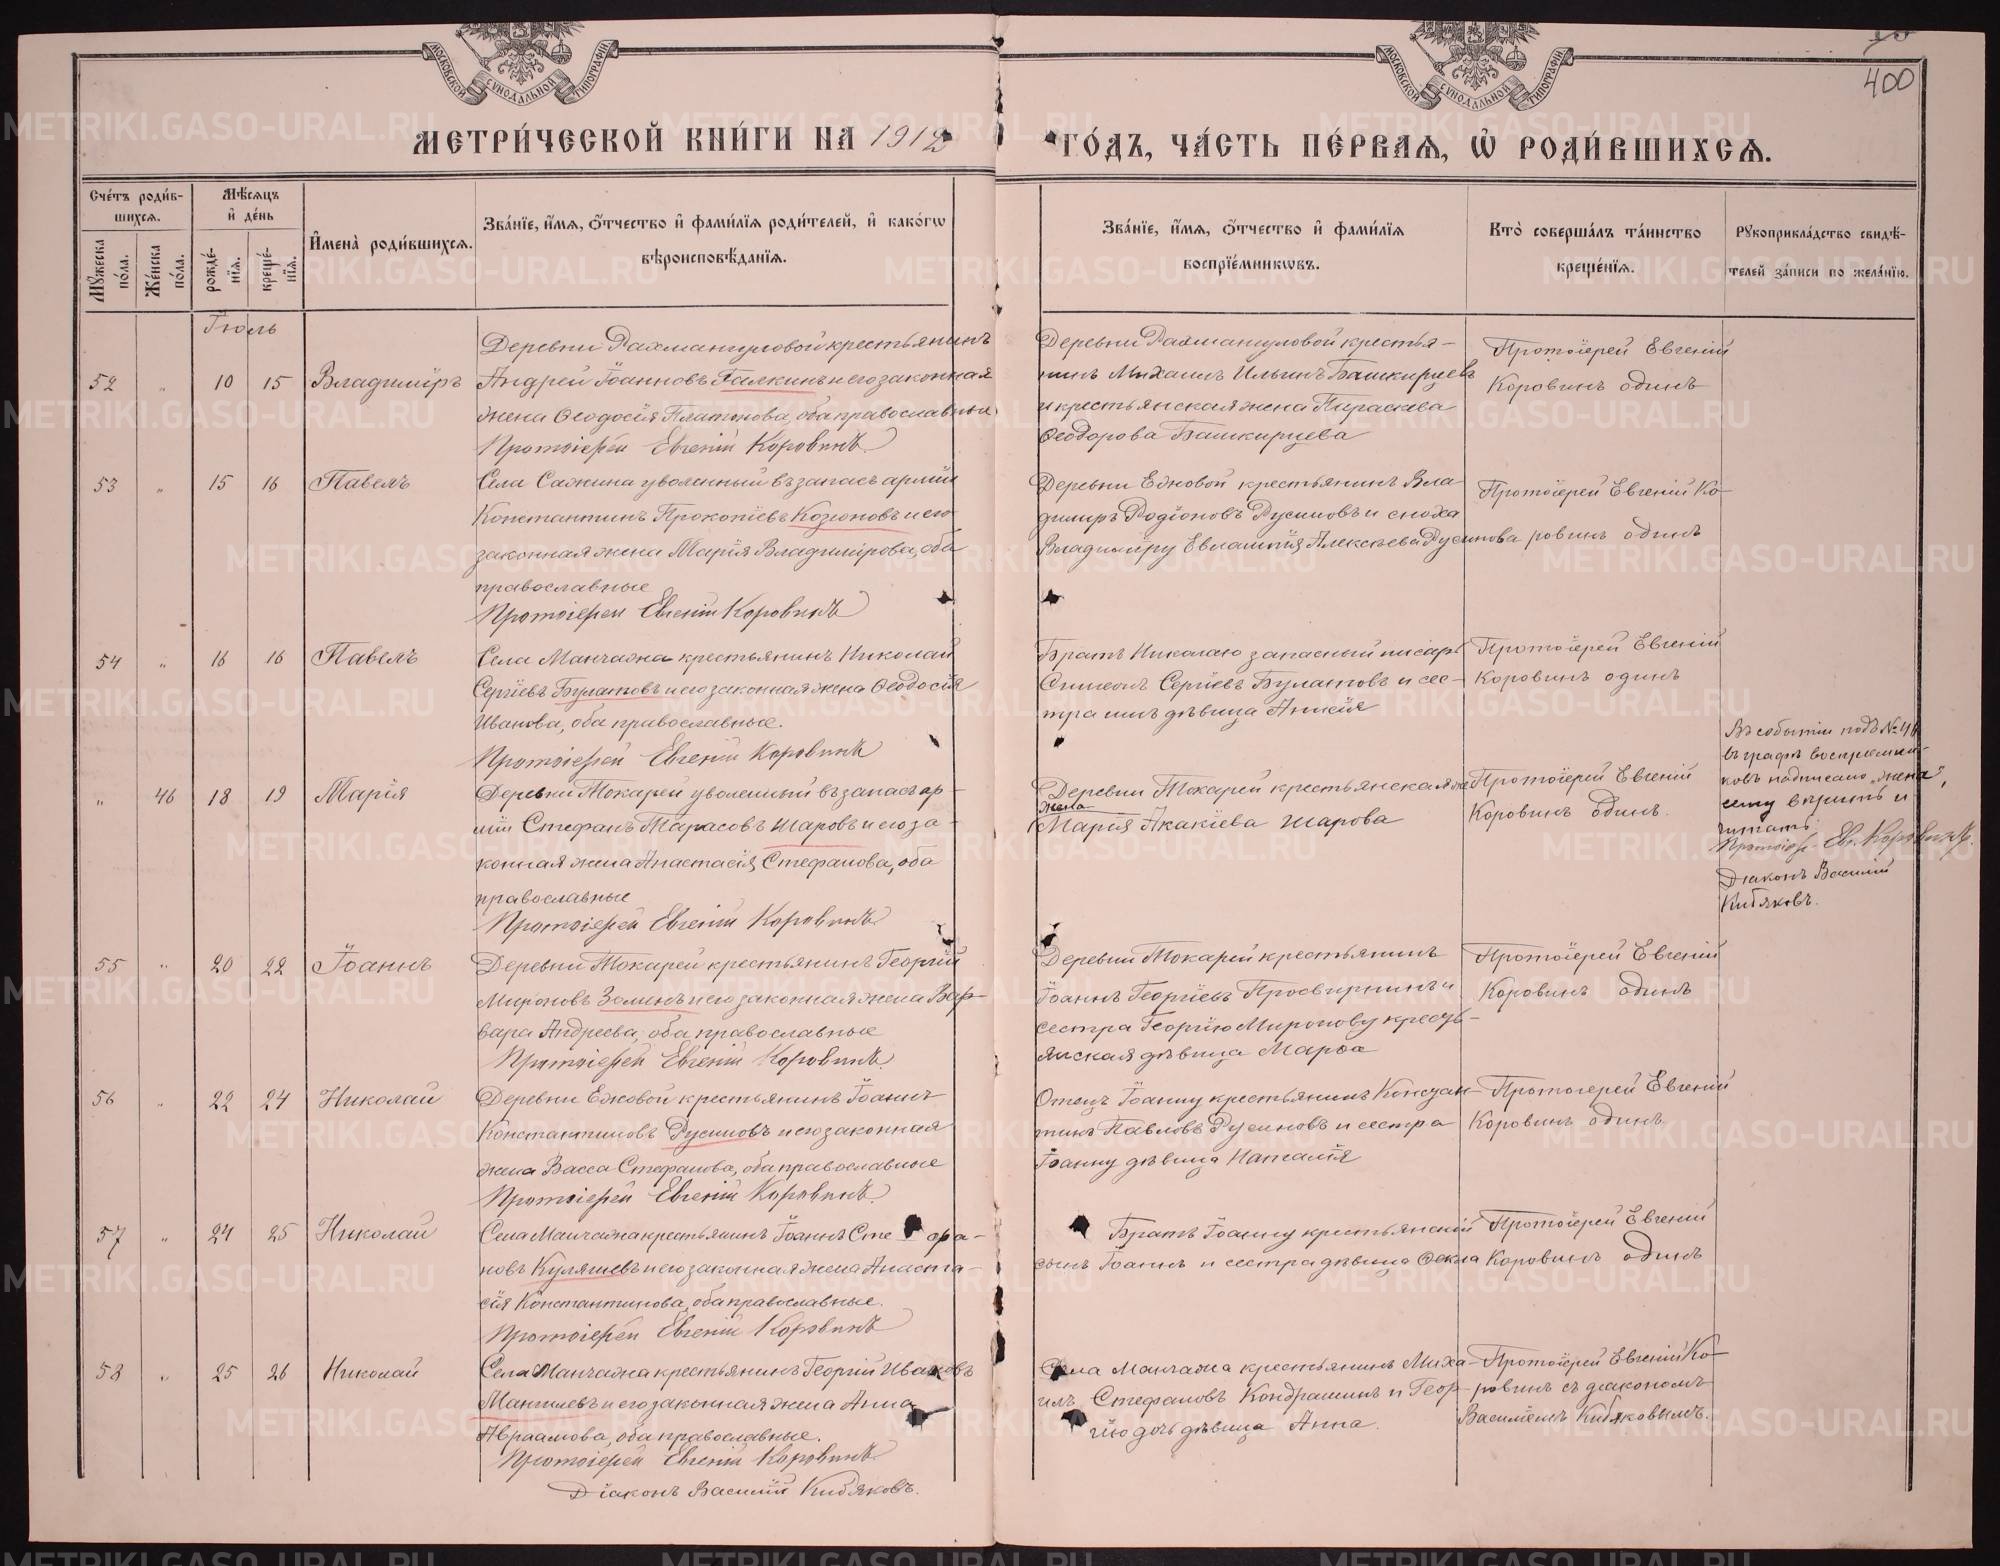 МОСКОВСКОЙ СУНОДАЛЬНОЙ ТИПОГРАФІИ
МОСКОВСКОЙ СУНОДАЛЬНОЙ ТИПОГРАФІИ
400
МЕТРИ́ЧЕСКОЙ КНИ́ГИ НА 1912 ГО́ДЪ, ЧА́СТЬ ПЕ́РВАЯ, Ѡ РОДИ́ВШИХСЯ.
Сче́тъ роди́в-
шихся.
Мѣ́сяцъ
и де́нь
Мꙋ́жеска по́ла.
Же́нска по́ла.
рожде́-
нїя.
креще́-
нїя.
Имена̀ роди́вшихся.
Зва́нїе, и́мя, ѻ́тчество и фами́лїя роди́телей, и како́гѡ
вѣроисповѣ́данїя.
Зва́нїе, и́мя, ѻ́тчество и фами́лїя
воспрїе́мникѡвъ.
Кто̀ соверша́лъ та́инство
креще́нїя.
Рꙋкоприкла́дство свидѣ́-
телей за́писи по жела́нїю.
Іюль
52 " 10 15 Владиміръ
Деревни Рахмангуловой крестьянинъ
Андрей Іоанновъ Галкинъ и его законная
жена Ѳеодосія Платонова, оба православные
Протоіерей Евгеній Коровинъ
Деревни Рахмангуловой крестья-
нинъ Михаилъ Ильинъ Башкирцевъ
и крестьянская жена Параскева
Ѳеодорова Башкирцева
Протоіерей Евгеній
Коровинъ одинъ
53 " 15 16 Павелъ
Села Сажина уволенный въ запасъ арміи
Константинъ Прокопіевъ Козіоновъ и его
законная жена Марія Владимірова, оба
православные
Протоіерей Евгеній Коровинъ
Деревни Еховой крестьянинъ Вла-
димиръ Родіоновъ Русиновъ и сноха
Владиміру Евлампія Алексѣева Русинова
Протоіерей Евгеній Ко-
ровинъ одинъ
54 " 16 16 Павелъ
Села Манчажа крестьянинъ Николай
Сергіевъ Булатовъ и его законная жена Ѳеодосія
Иванова, оба православные.
Протоіерей Евгеній Коровинъ
Братъ Николаю запасный писарь
Симеонъ Сергіевъ Булатовъ и сес-
тра ихъ дѣвица Анисія
Протоіерей Евгеній
Коровинъ одинъ
" 46 18 19 Марія
Деревни Токарей уволенный въ запасъ ар-
міи Стефанъ Тарасовъ Шаровъ и его за-
конная жена Анастасія Стефанова, оба
православные
Протоіерей Евгеній Коровинъ
Деревни Токарей крестьянская
жена
Марія Акакіева Шарова
Протоіерей Евгеній
Коровинъ одинъ.
Въ событіи подъ № 46
въ графѣ воспріемни-
ковъ надписано „жена",
сему вѣрить и
читать.
Протоіер. Евг. Коровинъ.
Діаконъ Василій
Кибяковъ.
55 " 20 22 Іоаннъ
Деревни Токарей крестьянинъ Георгій
Мироновъ Зоминъ и его законная жена Вар-
вара Андреева, оба православные
Протоіерей Евгеній Коровинъ
Деревни Токарей крестьянинъ
Іоаннъ Георгіевъ Просвирнинъ и
сестра Георгію Миронову кресть-
янская дѣвица Марѳа
Протоіерей Евгеній
Коровинъ одинъ
56 " 22 24 Николай
Деревни Еховой крестьянинъ Іоаннъ
Константиновъ Русиновъ и его законная
жена Васса Стефанова, оба православные
Протоіерей Евгеній Коровинъ
Отецъ Іоанну крестьянинъ Констан-
тинъ Павловъ Русиновъ и сестра
Іоанну дѣвица Наталія
Протоіерей Евгеній
Коровинъ одинъ
57 " 24 25 Николай
Села Манчажа крестьянинъ Іоаннъ Стефа-
новъ Куляшевъ и его законная жена Анаста-
сія Константинова, оба православные.
Протоіерей Евгеній Коровинъ
Братъ Іоанну крестьянскій
сынъ Іоаннъ и сестра дѣвица Ѳекла
Протоіерей Евгеній
Коровинъ одинъ
58 " 25 26 Николай
Села Манчажа крестьянинъ Георгій Ивановъ
Мангилевъ и его законная жена Анна
Авраамова, оба православные.
Протоіерей Евгеній Коровинъ
Діаконъ Василій Кибяковъ.
Села Манчажа крестьянинъ Миха-
илъ Стефановъ Кондрашинъ и Геор-
гію дочь дѣвица Анна.
Протоіерей Евгеній Ко-
ровинъ съ діакономъ
Василіемъ Кибяковымъ.
METRIKI.GASO-URAL.RU